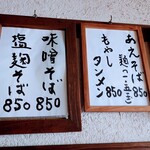 あえそば
麺(一・五玉)
850
もやし
タンメン
850
味噌そば
850
塩麹そば
850